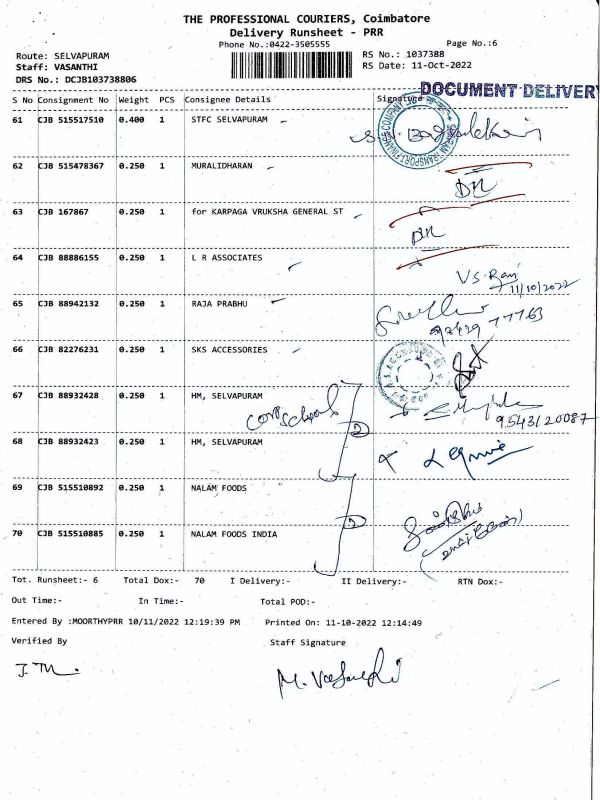 THE PROFESSIONAL COURIERS, Coimbatore
Delivery Runsheet - PRR
Phone No.:0422-3505555
Page No.:6
Route: SELVAPURAM
RS No.: 1037388
Staff: VASANTHI
RS Date: 11-Oct-2022
DRS No.: DCJB103738806
DOCUMENT DELIVERY
S No Consignment No Weight PCS Consignee Details Signature
61 CJB 515517510 0.400 1 STFC SELVAPURAM
62 CJB 515478367 0.250 1 MURALIDHARAN
DR
63 CJB 167867 0.250 1 for KARPAGA VRUKSHA GENERAL ST
DR
64 CJB 88886155 0.250 1 L R ASSOCIATES
V.S. Ravi
11/10/2022
65 CJB 88942132 0.250 1 RAJA PRABHU
77763
66 CJB 82276231 0.250 1 SKS ACCESSORIES
67 CJB 88932428 0.250 1 HM, SELVAPURAM
Corp School
2
9543120087
68 CJB 88932423 0.250 1 HM, SELVAPURAM
69 CJB 515510892 0.250 1 NALAM FOODS
2
70 CJB 515510885 0.250 1 NALAM FOODS INDIA
Tot. Runsheet:- 6 Total Dox:- 70 I Delivery:- II Delivery:- RTN Dox:-
Out Time:- In Time:- Total POD:-
Entered By :MOORTHYPRR 10/11/2022 12:19:39 PM Printed On: 11-10-2022 12:14:49
Verified By Staff Signature
M. Vasanthi